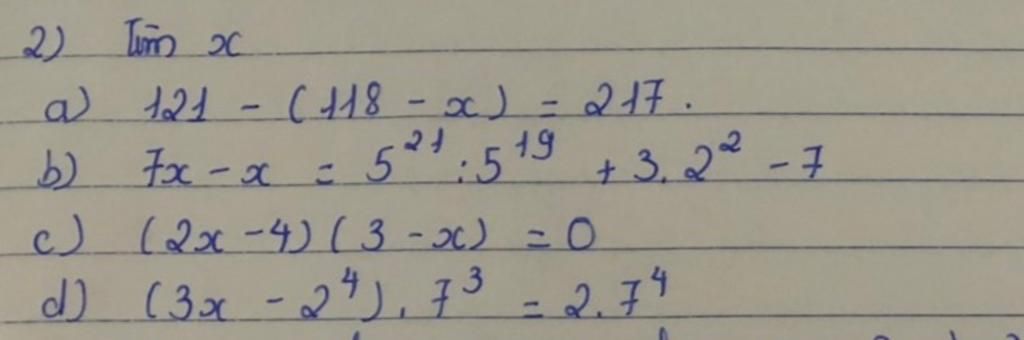 2) Tìm x
a) 121 - (118 - x) = 217.
b) 7x - x = 5²¹ : 5¹⁹ + 3. 2² - 7
c) (2x - 4)(3 - x) = 0
d) (3x - 2⁴). 7³ = 2. 7⁴